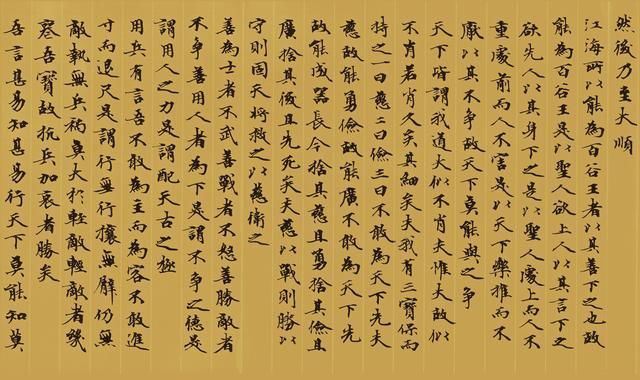 然後乃至大順
江海所以能為百谷王者以其善下之也故
能為百谷王是以聖人欲上人以其言下之
欲先人以其身下之是以聖人處上而人不
重處前而人不害是以天下樂推而不
厭以其不爭故天下莫能與之爭
天下皆謂我道大似不肖夫惟大故似
不肖若肖久矣其細矣夫我有三寶保而
持之一曰慈二曰儉三曰不敢為天下先夫
慈故能勇儉故能廣不敢為天下先
故能成器長今捨其慈且勇捨其儉且
廣捨其後且先死矣夫慈以戰則勝以
守則固天將救之以慈衛之
善為士者不武善戰者不怒善勝敵者
不爭善用人者為下是謂不爭之德是
謂用人之力是謂配天古之極
用兵有言吾不敢為主而為客不敢進
寸而退尺是謂行無行攘無臂仍無
敵執無兵禍莫大於輕敵輕敵者幾
喪吾寶故抗兵加哀者勝矣
吾言甚易知甚易行天下莫能知莫